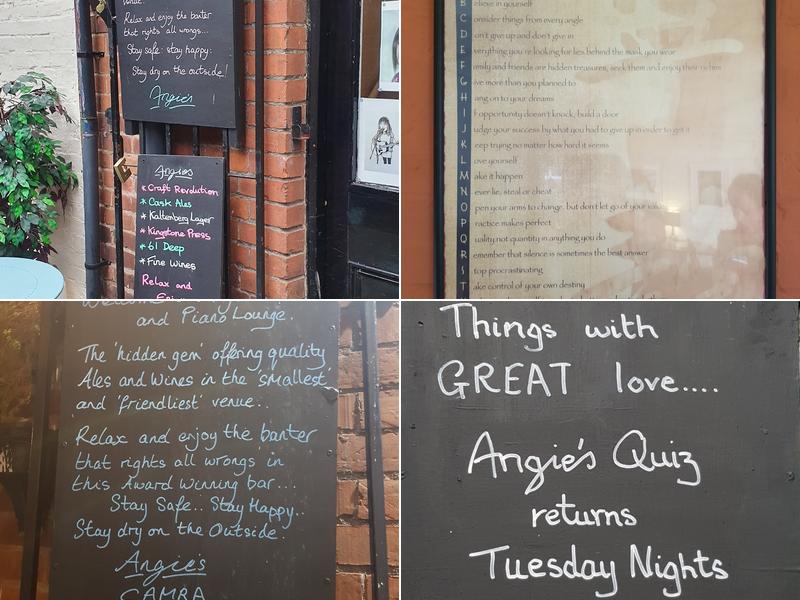 venue.
Relax and enjoy the banter
that rights all wrongs...
Stay safe: stay happy:
Stay dry on the outside!
Angie's
Angie's
* Craft Revolution
* Cask Ales
* Kaltenberg Lager
* Kingstone Press
* 61 Deep
* Fine Wines
Relax and
Enjoy
B elieve in yourself
C onsider things from every angle
D on't give up and don't give in
E verything you're looking for lies behind the mask you wear
F amily and friends are hidden treasures, seek them and enjoy their riches
G ive more than you planned to
H ang on to your dreams
I f opportunity doesn't knock, build a door
J udge your success by what you had to give up in order to get it
K eep trying no matter how hard it seems
L ove yourself
M ake it happen
N ever lie, steal or cheat
O pen your arms to change, but don't let go of your values
P ractice makes perfect
Q uality not quantity in anything you do
R emember that silence is sometimes the best answer
S top procrastinating
T ake control of your own destiny
and Piano Lounge.
The 'hidden gem' offering quality
Ales and Wines in the 'smallest'
and 'friendliest' venue..
Relax and enjoy the banter
that rights all wrongs in
this Award Winning bar...
Stay Safe.. Stay Happy..
Stay dry on the Outside.
Angie's
CAMRA
Things with
GREAT love....
Angie's Quiz
returns
Tuesday Nights